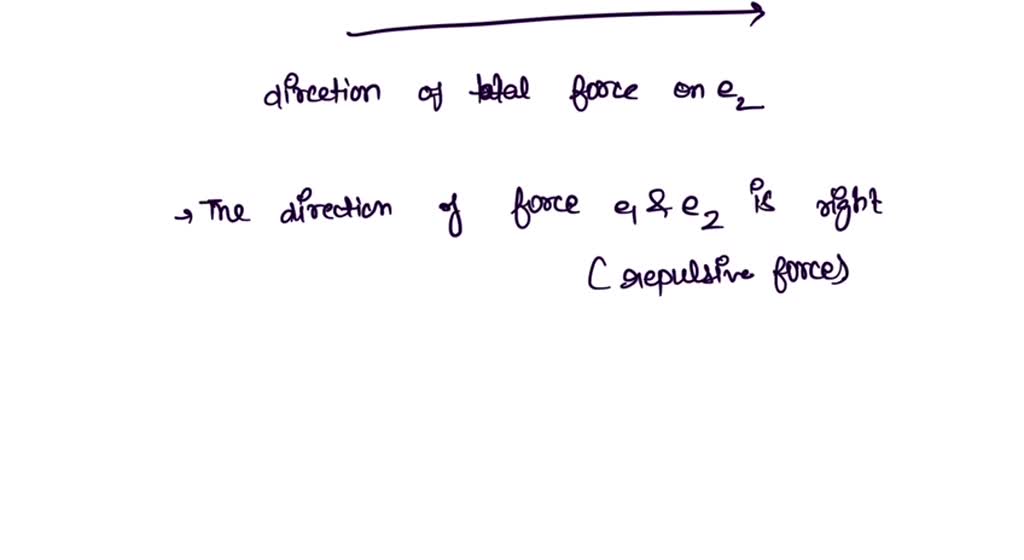 direction of total force on e2
→ The direction of force e1 & e2 is right
( repulsive forces)